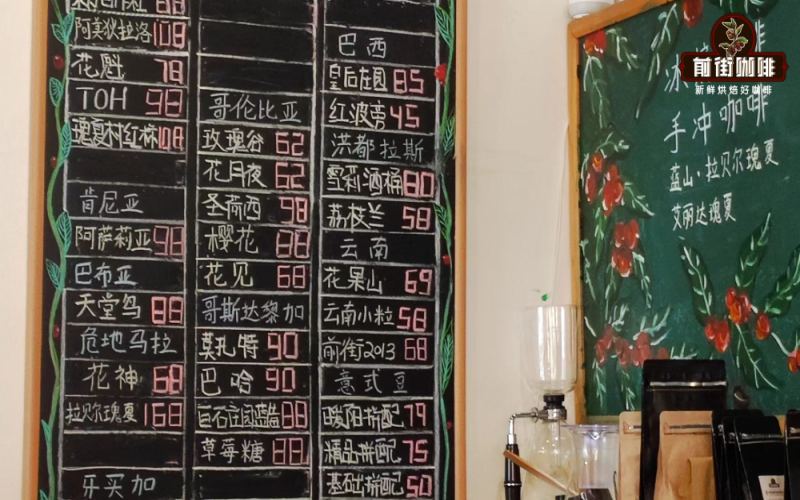 88
阿莫狄拉洛 108
花魁 78
TOH 98
瑰夏村红标 108
肯尼亚
阿萨莉亚 98
巴布亚
天堂鸟 88
危地马拉
花神 68
拉贝尔瑰夏 168
买加
哥伦比亚
玫瑰谷 62
花月夜 62
圣荷西 98
樱花 88
花见 68
哥斯达黎加
莫扎特 90
巴哈 90
巨石庄园 88
草莓糖 88
巴西
皇后庄园 85
红波旁 45
洪都拉斯
雪莉酒桶 80
荔枝兰 58
云南
花果山 69
云南小粒 58
前街2013 68
意式豆
暖阳拼配 79
精品拼配 75
基础拼配 50
冰
手冲咖啡
蓝山·拉贝尔瑰夏
艾丽达瑰夏
前街咖啡
新鲜烘焙好咖啡